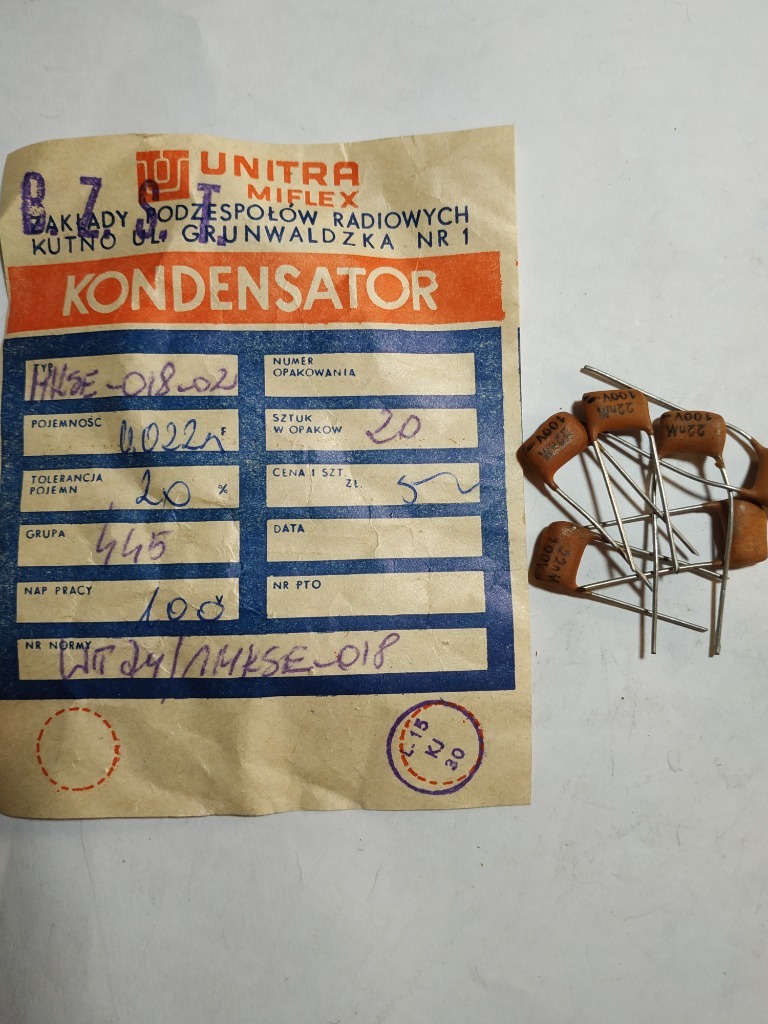 UNITRA
MIFLEX
B. Z. S. T.
ZAKŁADY PODZESPOŁÓW RADIOWYCH
KUTNO UL. GRUNWALDZKA NR 1
KONDENSATOR
TYP MKSE-018-02
NUMER OPAKOWANIA
POJEMNOŚĆ 0,022µ F
SZTUK W OPAKOW 20
TOLERANCJA POJEMN 20 %
CENA 1 SZT. ZŁ. 5
GRUPA 445
DATA
NAP PRACY 100 V
NR PTO
NR NORMY WT 74/1MKSE-018
L-15
KJ
30
22nM
100V-
22nM
100V-
22nM
100V-
22nM
100V-